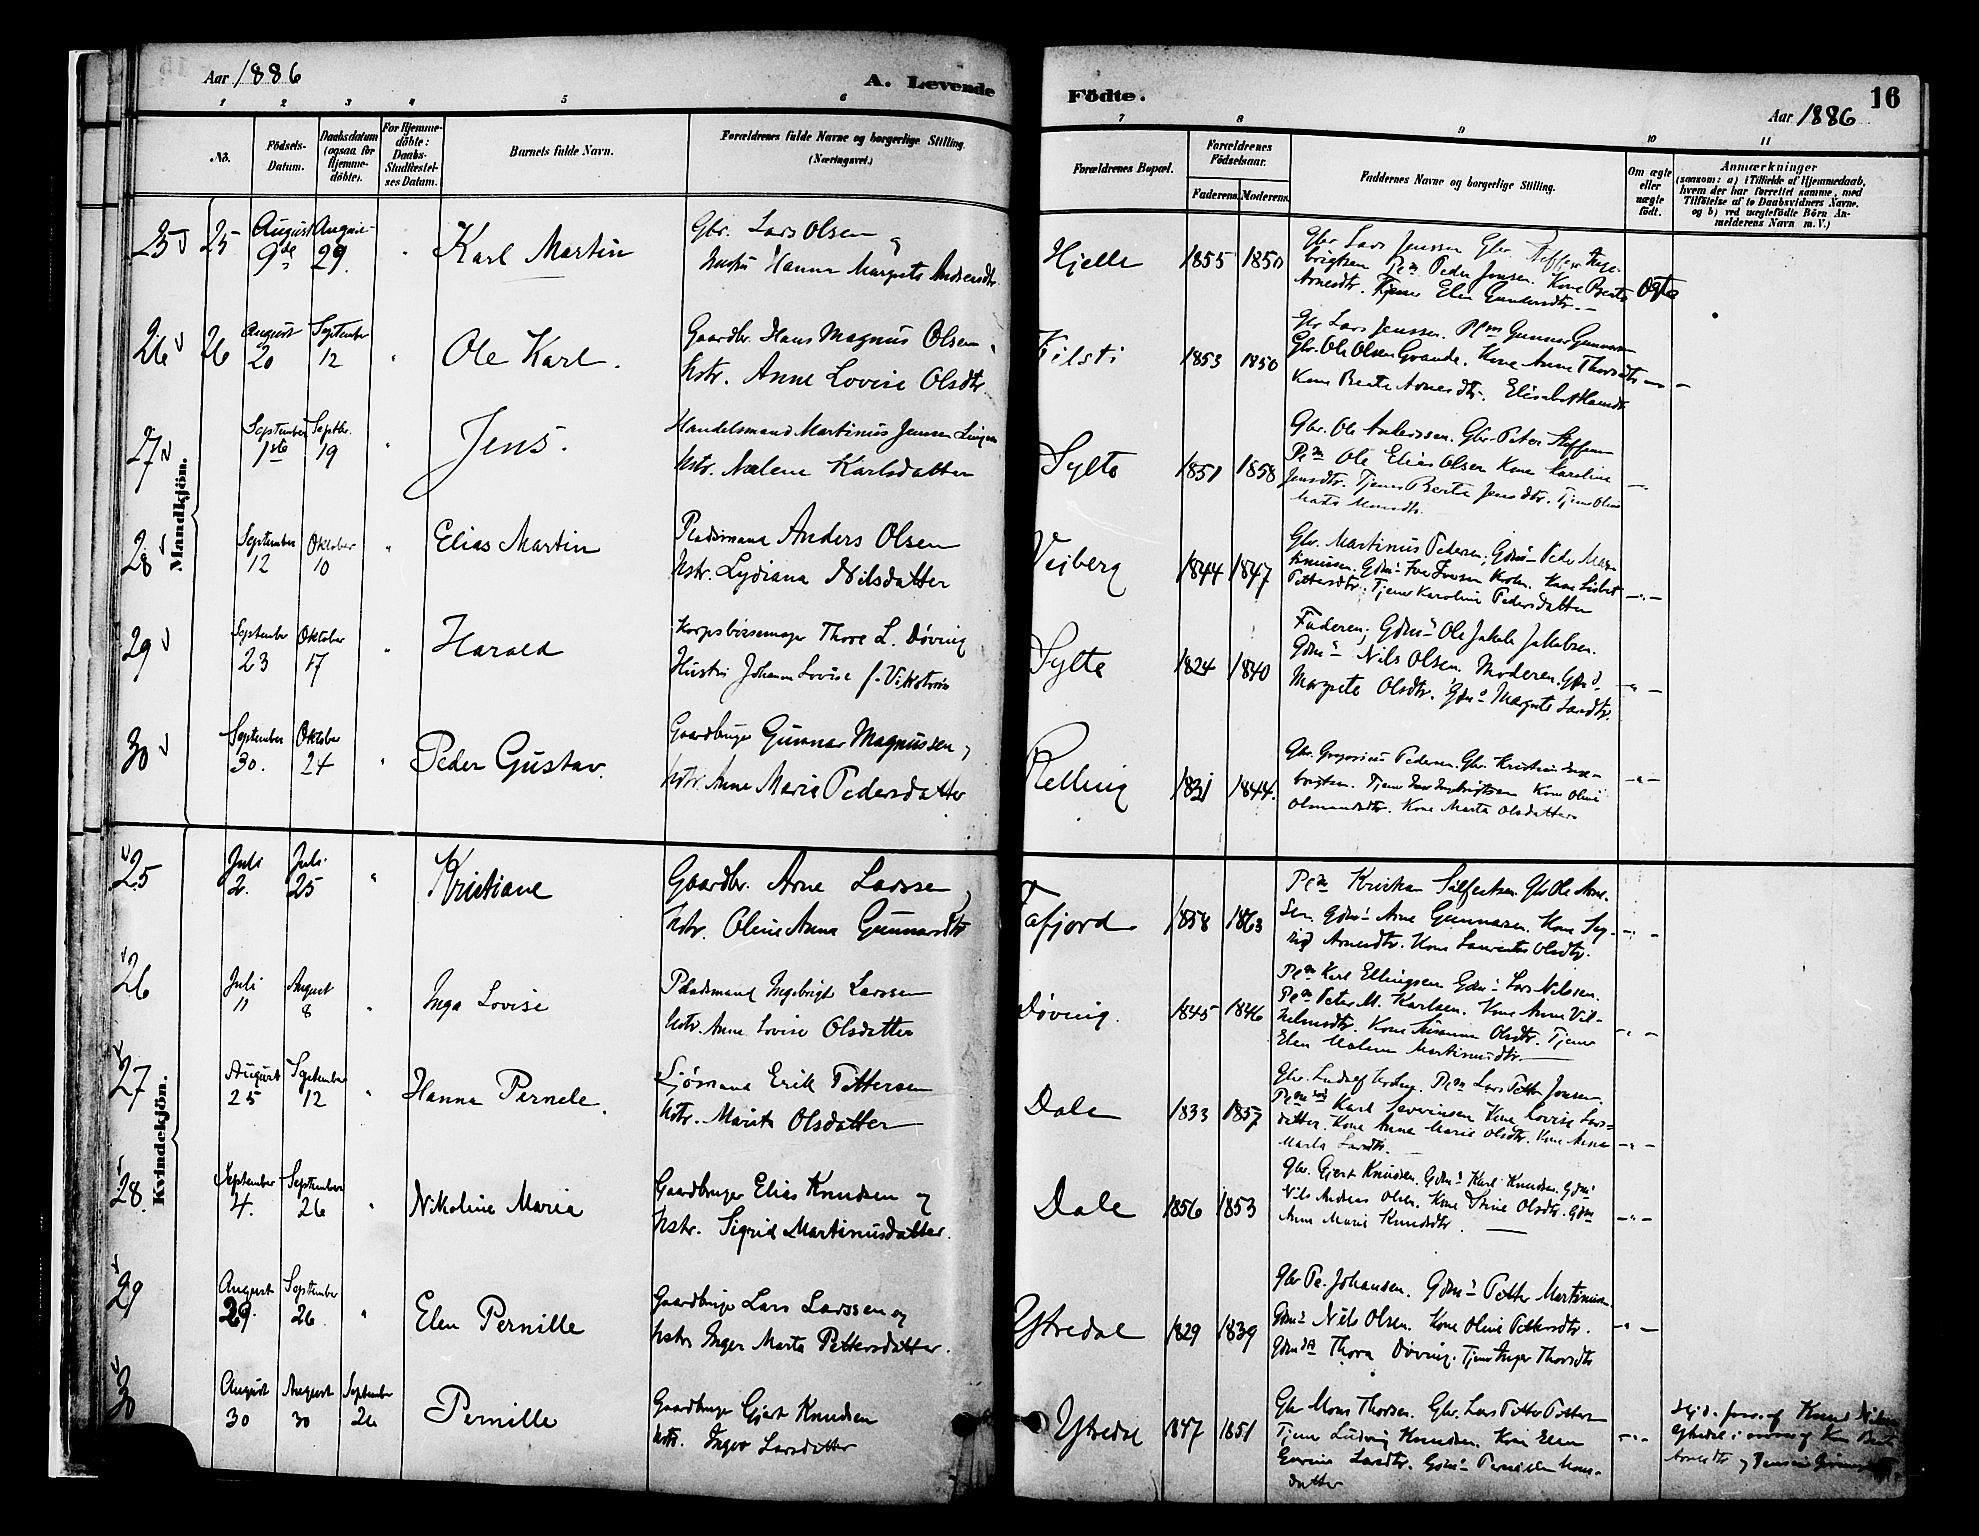 Aar 1886
A. Levende
Födte.
16
Aar 1886
1 2 3 4 5 6 7 8 9 10 11
No.
Födsels-
Datum.
Daabsdatum
(ogsaa for
Hjemme-
döbte).
For Hjemme-
döbte:
Daabs-
Stadfæstel-
ses Datum.
Barnets fulde Navn.
Forældrenes fulde Navne og borgerlige Stilling.
(Næringsvei.)
Forældrenes Bopæl.
Forældrenes
Födselsaar.
Faderens. Moderens.
Faddernes Navne og borgerlige Stilling.
Om ægte
eller
uægte
födt.
Anmærkninger
(saasom: a) i Tilfælde af Hjemmedaab,
hvem der har forrettet samme, med
Tilföielse af to Daabsvidners Navne.
og b) ved uægtefödte Börn An-
melderens Navn m. V.)
Mandkjön.
25 25 August 9de August 29. " Karl Martin
Gbr. Lars Olsen og
Hustru Hanna Margrete Andersdtr.
Hjelle 1855 1850
Gbr Lars Jenssen Gbr Steffen Inge-
brigtsen Plm Peder Jonsen. Kone Berte
Arnesdtr. Tjener Elen Gundersdtr.
ægte
26 26 August 20 September 12 " Ole Karl.
Gaardbr. Hans Magnus Olsen
hstr. Anne Lovise Olsdtr.
Kilsti 1853 1850
Gbr Lars Jenssen. Plm Gunnar Gunnarsen
Gbr. Ole Olsen Grande. Kone Anne Thorsdtr
Kone Berte Arnesdtr. Elisabet Hansdtr
27 September 1ste Septbr. 19 " Jens.
Handelsmand Martinus Jensen
hstr. Nalene Karlsdatter
Sylte 1851 1858
Gbr. Ole Anderssen. Gbr. Peter Steffensen
Plm Ole Elias Olsen Kone Karoline
Jensdtr. Tjener Berte Jensdtr. Tjener Oline
28 September 12 Oktober 10 " Elias Martin
Pladsmand Anders Olsen
hstr. Lydiana Nilsdatter
Vejberg 1844 1847
Gbr. Martinus Pedersen; Gdms Peder Mar-
tinussen. Gdms Iver Iversen Kone Lisbet
Pettersdtr. Tjener Karoline Pedersdatter
29 September 23 Oktober 17 " Harald
Korpsbössemager Thore L. Døving
Hustru Johanne Lovise f. Vikstrøm
Sylte 1824 1840
Faderen; Gdms Ole Jakob Jakobsen.
Gdms Nils Olsen. Moderen. Gdmd.
Margrete Olsdtr. Gdms Margrete Larsdtr.
30 September 30. Oktober 24 " Peder Gustav.
Gaardbruger Gunnar Magnussen og
hstr. Anne Marie Pedersdatter
Relling 1831 1844.
Gbr. Gregorius Pedersen. Gbr. Kristian Inge-
brigtsen. Tjener Ingebrigtsen Kone Oline
Olsdatter. Kone Marta Olsdatter
Kvindekjön.
25 Juli 2. Juli 25 " Kristiane
Gaardbr. Arne Larssen
hstr. Oline Anna Gunnarsdtr
Tafjord 1858 1863
Plm Kristian Silfestsen. Gbr Ole Arne-
sen. Gdms Arne Gunnarsen. Kone Sig-
rid Arnesdtr. Kone Laurentse Olsdtr.
26 Juli 11 August 8 " Inga Lovise
Pladsmand Ingebrigt Larssen
hstr. Anne Lovise Olsdatter
Døving. 1845 1846
Plm Karl Ellingsen Gdms Lars Nilssen.
Plm Peter M. Karlsen. Kone Anne Vil-
helmsdtr. Kone Susanne Olsdtr. Tjener
Elen Malene Martinusdtr.
27 August 25 September 12 " Hanna Pernele.
Sjømand Erik Pettersen
hstr. Marit Olsdatter
Dale 1833 1857
Gbr. Ludvig. Plm Lars Petter Jonsen.
Plm Karl Severinsen Kone Lovise Lars-
datter. Kone Anne Marie Olsdtr. Kone Anne
Marta Larsdtr.
28. September 4. September 26 " Nikoline Maria
Gaardbruger Elias Knudsen og
hstr. Sigrid Martinusdatter.
Dale 1856 1853
Gbr. Gjert Knudsen. Gdms Karl Knudsen. Gdms
Nils Andreas Olsen. Kone Stine Olsdtr. Gdm
Anne Marie Knudsdtr
29 August 29. September 26. " Elen Pernille
Gaardbruger Lars Larssen og
hstr Inger Marta Pettersdatter.
Ytredal 1829 1839
Gbr Pe. Johansen. Gdms Petter Martinussen
Gdms Nils Olsen. Kone Oline Pettersdtr.
Gdmds Thora Døving. Tjener Inger Thorsdtr
30 August 30 August 30 September 26 Pernille
Gaardbruger Gjert Knudsen
hstr. Inger Larsdatter
Ytredal 1847 1851
Gbr Mons Thorsen. Gbr. Lars Petter Pettersen
Tjener Ludvig Knudsen. Kone Elen
Larsdtr. Gdms Pernille Mons-
datter
Hjd. forr. af Knud Nilsen
Ytredal i overv. af Kone Berte
Arnesdtr og